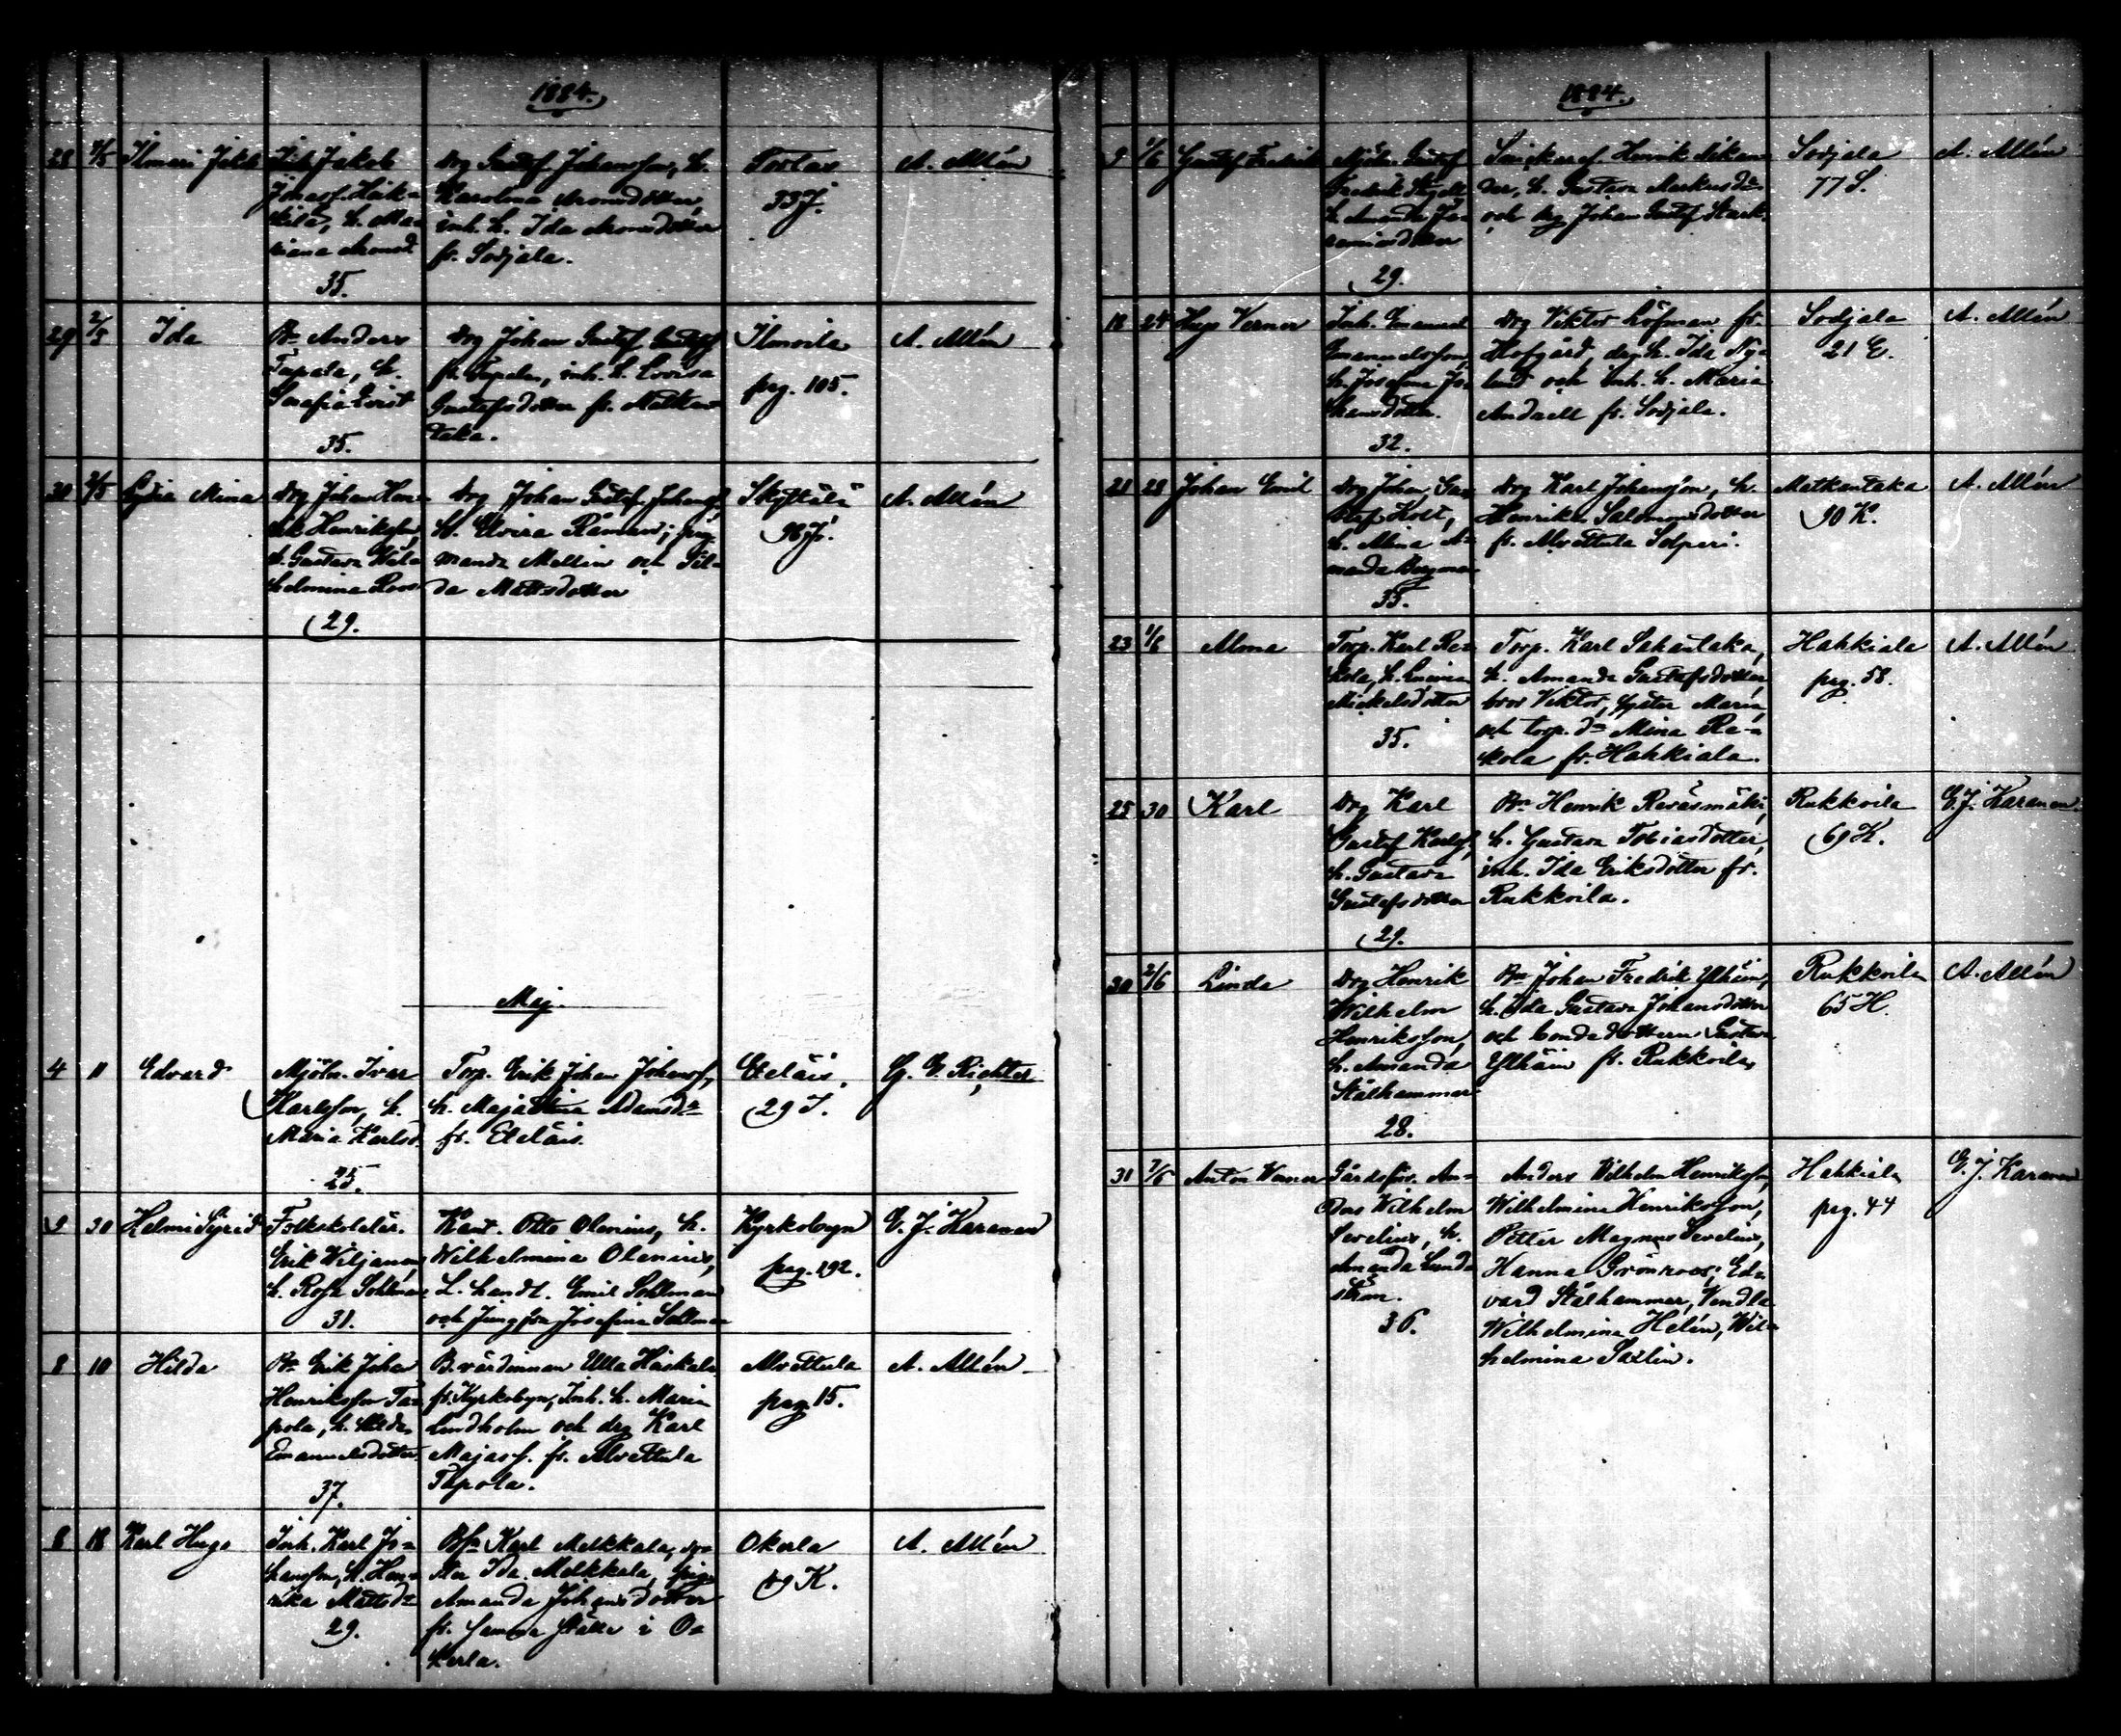 1884.
28 2/5 Ilmari Jakob
Inh. Jakob
Jonasf. Heik-
kilä, h. Ma-
riana Aronsd.
35.
Drg Gustaf Johansson, h.
Karolina Aronsdotter,
inh. h. Ida Aronsdotter
fr. Sodjala.
Torlax
33 J.
A. Allén
29 2/5 Ida
Bn Anders
Tapala, h.
Serafia Qvist
35.
Drg Johan Gustaf Gustafsf
fr. Tapala, inh. h. Lovisa
Gustafsdotter fr. Matkan-
taka.
Ilmoila
pag. 105.
A. Allén
30 2/5 Lydia Mina
Drg Johan Hen-
rik Henriksson,
h. Gustava Wil-
helmina Roos
29.
Drg Johan Gustaf Johansf,
h. Elvira Råman; pig.
Amanda Mellin och Hil-
da Mattsdotter
Skyttälä
96 J.
A. Allén
Maj.
4 11 Edvard
Mjöln. Ivar
Karlsson, h.
Maria Karlsd.
25.
Torp. Erik Johan Johansf,
h. Maja Stina Adamsdr
fr. Eteläis.
Eteläis.
29 I.
G. E. Richter
9 30 Helmi Sigrid
Folkskolelär.
Erik Wiljanen,
h. Rosa Sohlman
31.
Kant. Otto Olenius, h.
Wilhelmina Olenius,
L. handl. Emil Sohlman
och Jungfru Josefina Sohlman
Kyrkobyn
pag. 192.
E. J. Karanen
8 10 Hilda
Bn Erik Johan
Henriksson Ta-
pola, h. Hilda
Emanuelsdotter
37.
B. värdinnan Ulla Haskala
fr. Kyrkobyn, Inh. h. Maria
Lindholm och drg Karl
Majasf. fr. Alvettula
Tapola.
Alvettula
pag. 15.
A. Allén
8 18 Karl Hugo
Inh. Karl Jo-
hansson, h. Hen-
rika Mattsdr
29.
Bsn Karl Melkkala, dot-
ter Ida Melkkala, pig.
Amanda Johansdotter
fr. samma ställe i O-
kerla.
Okerla
49 K.
A. Allén
1884.
9 1/6 Gustaf Fredrik
Mjöln. Gustaf
Fredrik
h. Amanda Je-
remiasdotter
29.
Snickaref. Henrik Nikan-
der, h. Gustava Markusdr
och drg Johan Gustaf Stark.
Sodjala
77 S.
A. Allén
18 24 Hugo Verner
Inh. Emanuel
Emanuelsson,
h. Josefina Jo-
hansdotter.
32.
Drg Viktor Löfman fr.
Hofgård, drg h. Ida Ny-
lund och inh. h. Maria
Andsell fr. Sodjala.
Sodjala
21 E.
A. Allén
21 28 Johan Emil
Drg Johan Gus-
taf Kost,
h. Alina A-
manda Bergman
35.
Drg Karl Johansson, h.
Henrika Salomonsdotter
fr. Alvettula Selperi.
Matkantaka
90 K.
A. Allén
23 1/6 Alma
Torp. Karl Re-
kola, h. Lovisa
Mickelsdotter
35.
Torp. Karl Sahantaka,
h. Amanda Gustafsdotter,
bror Viktor, syster Maria
och torp. dr Mina Re-
kola fr. Hahkiala.
Hahkiala
pag. 58.
A. Allén
25 30 Karl
Drg Karl
Gustaf Karlsf,
h. Gustava
Gustafsdotter
29.
Bn Henrik Reväsmäki,
h. Gustava Tobiasdotter,
inh. Ida Eriksdotter fr.
Rukkoila.
Rukkoila
69 K.
E. J. Karanen
30 2/6 Linda
Drg Henrik
Wilhelm
Henriksson,
h. Amanda
Stålhammar
28.
Bn Johan Fredrik Ylhäin,
h. Ida Gustava Johansdotter
och bondedottern Gustava
Ylhäin fr. Rukkoila.
Rukkoila
65 H.
A. Allén
31 7/6 Anton Werner
Gårdsför. An-
ders Wilhelm
Sevelius, h.
Amanda Lund-
ström.
36.
Anders Wilhelm Henriksson,
Wilhelmina Henriksson,
Petter Magnus Sevelius,
Hanna Grönroos; Ed-
vard Stålhammar, Vendla
Wilhelmina Helén, Wil-
helmina Saxlin.
Hahkiala
pag. 44
E. J. Karanen